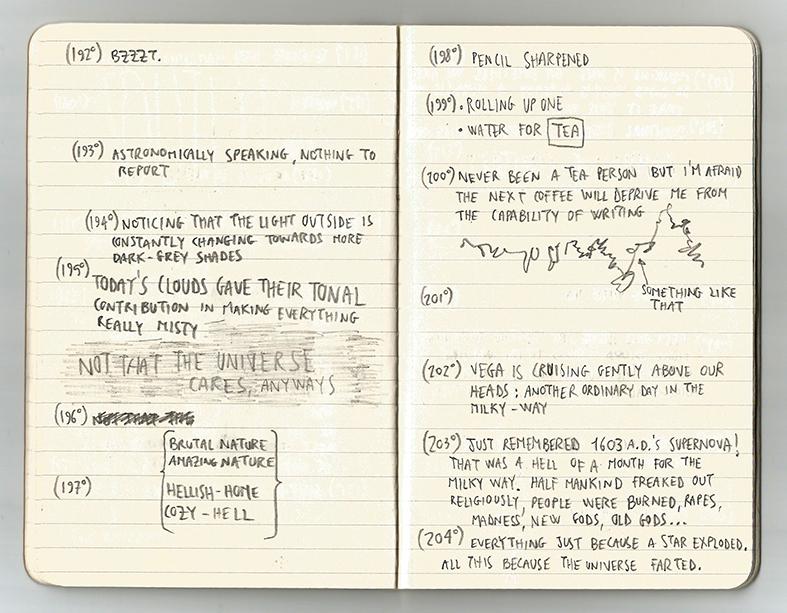 (192°) BZZZT.
(193°) ASTRONOMICALLY SPEAKING, NOTHING TO
REPORT
(194°) NOTICING THAT THE LIGHT OUTSIDE IS
CONSTANTLY CHANGING TOWARDS MORE
DARK-GREY SHADES
(195°) TODAY'S CLOUDS GAVE THEIR TONAL
CONTRIBUTION IN MAKING EVERYTHING
REALLY MISTY
NOT THAT THE UNIVERSE
CARES, ANYWAYS
(196°) NOT THAT THE
BRUTAL NATURE
AMAZING NATURE
(197°) HELLISH-HOME
COZY-HELL
(198°) PENCIL SHARPENED
(199°) • ROLLING UP ONE
• WATER FOR TEA
(200°) NEVER BEEN A TEA PERSON BUT I'M AFRAID
THE NEXT COFFEE WILL DEPRIVE ME FROM
THE CAPABILITY OF WRITING
(201°) SOMETHING LIKE
THAT
(202°) VEGA IS CRUISING GENTLY ABOVE OUR
HEADS: ANOTHER ORDINARY DAY IN THE
MILKY-WAY
(203°) JUST REMEMBERED 1603 A.D.'S SUPERNOVA!
THAT WAS A HELL OF A MONTH FOR THE
MILKY WAY. HALF MANKIND FREAKED OUT
RELIGIOUSLY, PEOPLE WERE BURNED, RAPES,
MADNESS, NEW GODS, OLD GODS...
(204°) EVERYTHING JUST BECAUSE A STAR EXPLODED.
ALL THIS BECAUSE THE UNIVERSE FARTED.